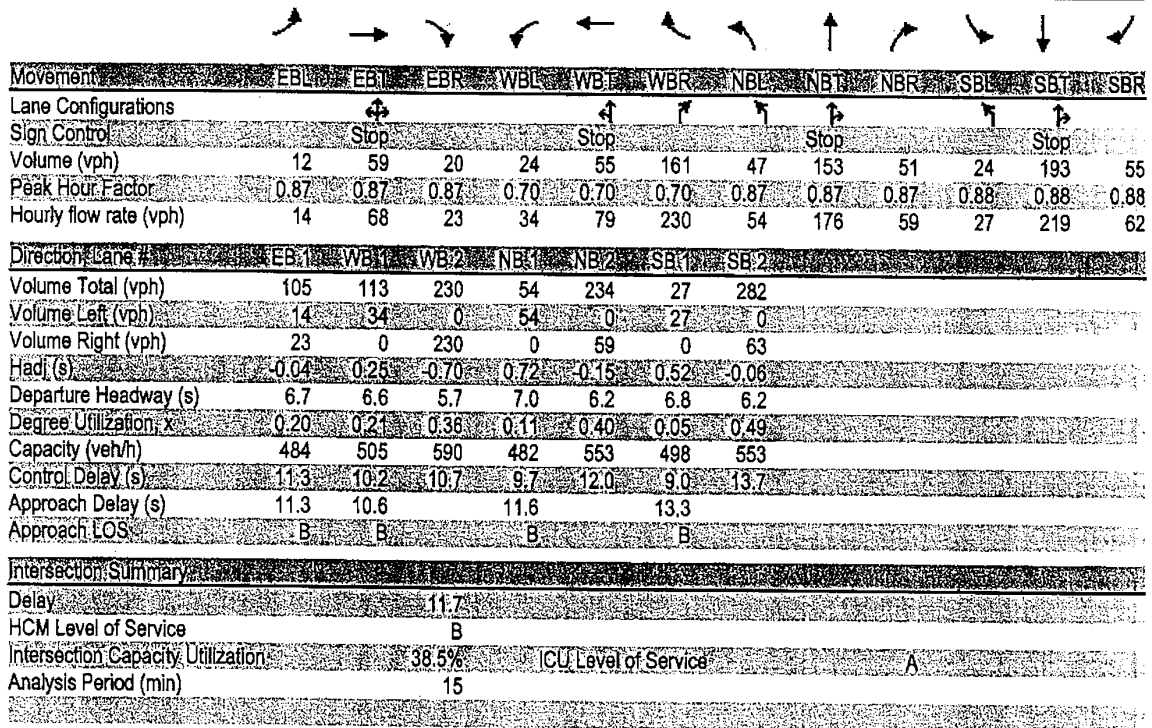 Movement EBL EBT EBR WBL WBT WBR NBL NBT NBR SBL SBT SBR
Lane Configurations
Sign Control Stop Stop Stop Stop
Volume (vph) 12 59 20 24 55 161 47 153 51 24 193 55
Peak Hour Factor 0.87 0.87 0.87 0.70 0.70 0.70 0.87 0.87 0.87 0.88 0.88 0.88
Hourly flow rate (vph) 14 68 23 34 79 230 54 176 59 27 219 62
Direction, Lane # EB 1 WB 1 WB 2 NB 1 NB 2 SB 1 SB 2
Volume Total (vph) 105 113 230 54 234 27 282
Volume Left (vph) 14 34 0 54 0 27 0
Volume Right (vph) 23 0 230 0 59 0 63
Hadj (s) -0.04 0.25 -0.70 0.72 -0.15 0.52 -0.06
Departure Headway (s) 6.7 6.6 5.7 7.0 6.2 6.8 6.2
Degree Utilization, x 0.20 0.21 0.36 0.11 0.40 0.05 0.49
Capacity (veh/h) 484 505 590 482 553 498 553
Control Delay (s) 11.3 10.2 10.7 9.7 12.0 9.0 13.7
Approach Delay (s) 11.3 10.6 11.6 13.3
Approach LOS B B B B
Intersection Summary
Delay 11.7
HCM Level of Service B
Intersection Capacity Utilization 38.5% ICU Level of Service A
Analysis Period (min) 15